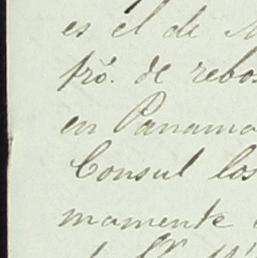 es el de
fró. de rebos
en Panama
Consul los
mamente